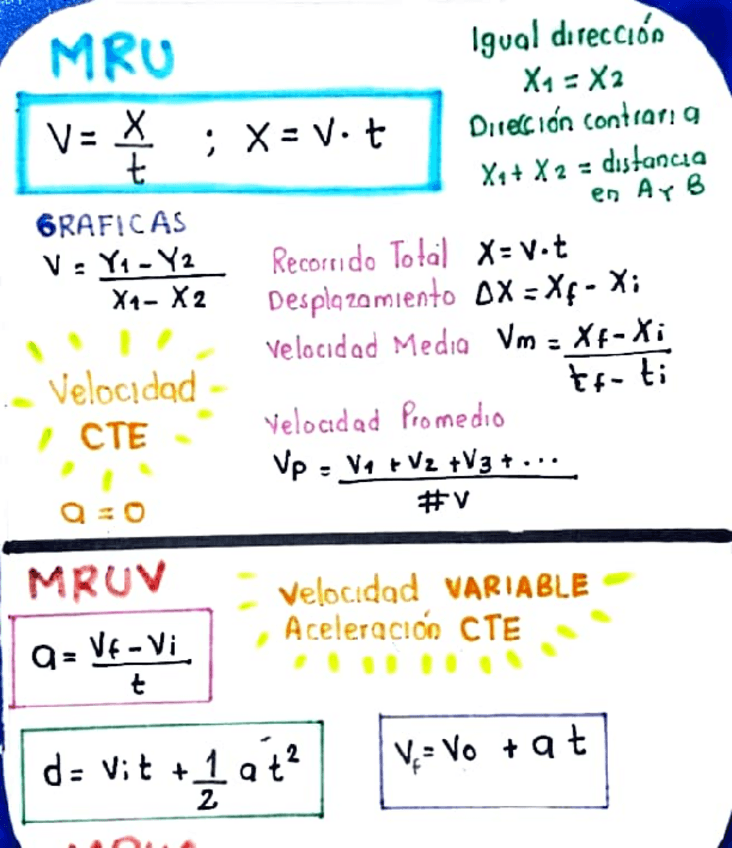 MRU
V = X/t ; X = V · t
Igual dirección
X1 = X2
Dirección contraria
X1 + X2 = distancia
en A y B
GRAFICAS
V = Y1 - Y2 / X1 - X2
Recorrido Total X = V · t
Desplazamiento ΔX = Xf - Xi
Velocidad Media Vm = Xf - Xi / tf - ti
Velocidad
CTE
a = 0
Velocidad Promedio
Vp = V1 + V2 + V3 + ... / # V
MRUV
Velocidad VARIABLE
Aceleración CTE
a = Vf - Vi / t
d = Vit + 1/2 a t²
Vf = Vo + a t